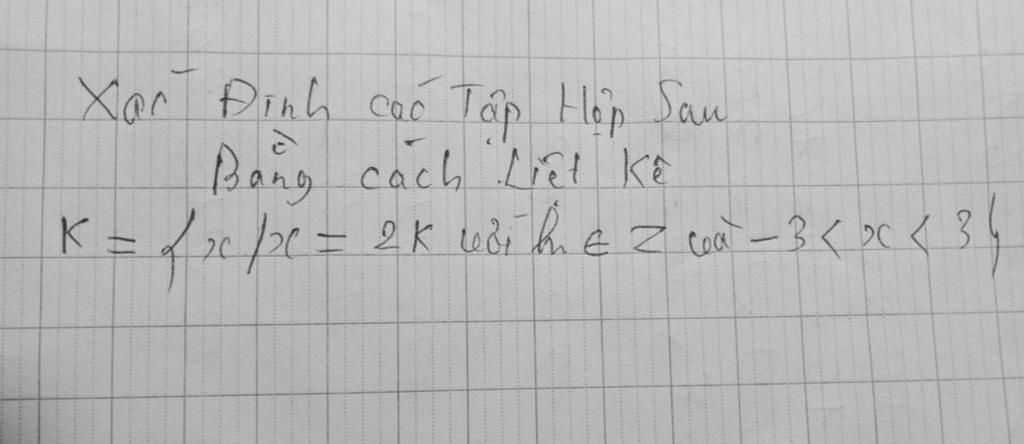 Xác Định các Tập Hợp Sau
Bằng cách Liệt Kê
K = { x / x = 2K với k ∈ Z và - 3 < x < 3 }